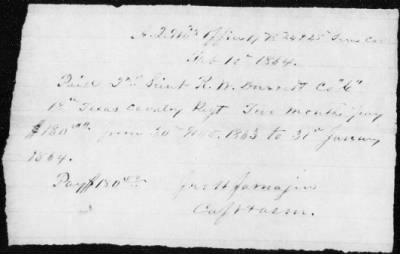 A.Q.M's Office 17 & 24 & 25" Texas Cav
Feb 15" 1864.
Paid 2nd Lieut R. W. Burnett Co "G"
18" Texas Cavalry Regt Two months pay
$180.00 from 30" Nov. 1863 to 31st January
1864.
Pay $180.00 Jno H Jarnagin
Capt & aqm.